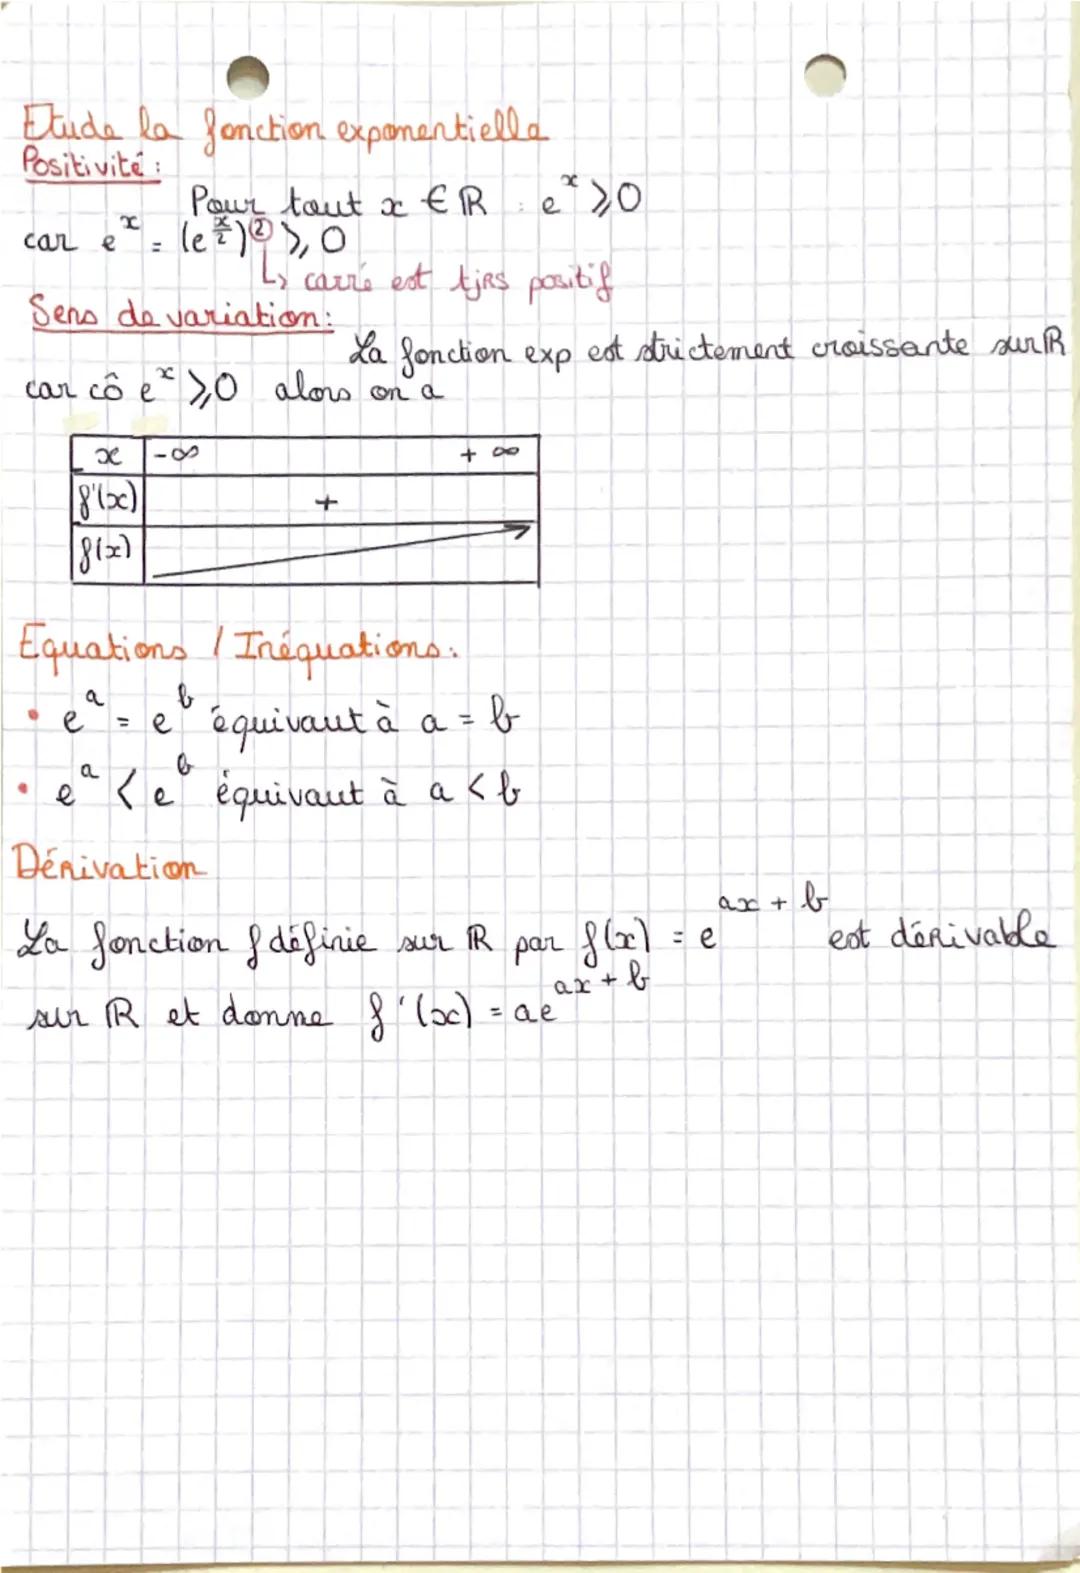 Etude la fonction exponentielle
Positivité :
Pour tout x ∈ ℝ : e^x ⩾ 0
car e^x = (e^(x/2))^2 ⩾ 0
↳ carré est tjrs positif
Sens de variation :
La fonction exp est strictement croissante sur ℝ
car cô e^x ⩾ 0 alors on a
x -∞ + ∞
f'(x) +
f(x)
Equations / Inéquations :
• e^a = e^b équivaut à a = b
• e^a < e^b équivaut à a < b
Dérivation
La fonction f définie sur ℝ par f(x) = e^(ax + b) est dérivable
sur ℝ et donne f'(x) = ae^(ax + b)